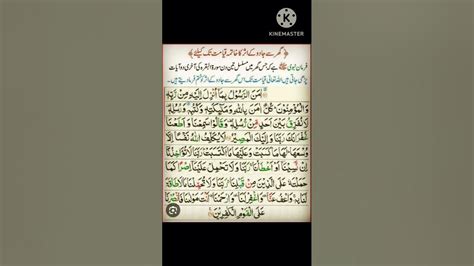 KINEMASTER
﴿ گھر سے جادو کے اثر کا خاتمہ قیامت تک کیلئے ﴾
فرمان نبوی ﷺ ہے کہ جس گھر میں مسلسل تین دن سورۃ البقرہ کی آخری دو آیات
پڑھی جاتی ہیں اللہ تعالی قیامت تک اس گھر سے جادو کے اثر کو ختم فرما دیتے ہیں۔
اٰمَنَ الرَّسُوْلُ بِمَاۤ اُنْزِلَ اِلَیْهِ مِنْ رَّبِّهٖ
وَالْمُؤْمِنُوْنَ كُلٌّ اٰمَنَ بِاللّٰهِ وَمَلٰٓئِكَتِهٖ وَكُتُبِهٖ وَرُسُلِهٖ لَا
نُفَرِّقُ بَیْنَ اَحَدٍ مِّنْ رُّسُلِهٖ وَقَالُوْا سَمِعْنَا وَاَطَعْنَا
غُفْرَانَكَ رَبَّنَا وَاِلَیْكَ الْمَصِیْرُ لَا یُكَلِّفُ اللّٰهُ نَفْسًا اِلَّا
وُسْعَهَا لَهَا مَا كَسَبَتْ وَعَلَیْهَا مَا اكْتَسَبَتْ رَبَّنَا لَا تُؤَاخِذْنَاۤ
اِنْ نَّسِیْنَاۤ اَوْ اَخْطَاْنَا رَبَّنَا وَلَا تَحْمِلْ عَلَیْنَاۤ اِصْرًا كَمَا
حَمَلْتَهٗ عَلَى الَّذِیْنَ مِنْ قَبْلِنَا رَبَّنَا وَلَا تُحَمِّلْنَا مَا لَا طَاقَةَ
لَنَا بِهٖ وَاعْفُ عَنَّا وَاغْفِرْ لَنَا وَارْحَمْنَا اَنْتَ مَوْلٰىنَا فَانْصُرْنَا
عَلَى الْقَوْمِ الْكٰفِرِیْنَ